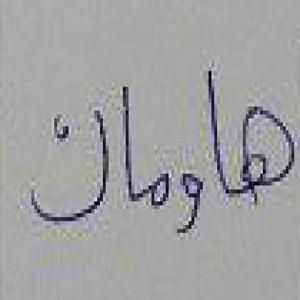 هاوماك